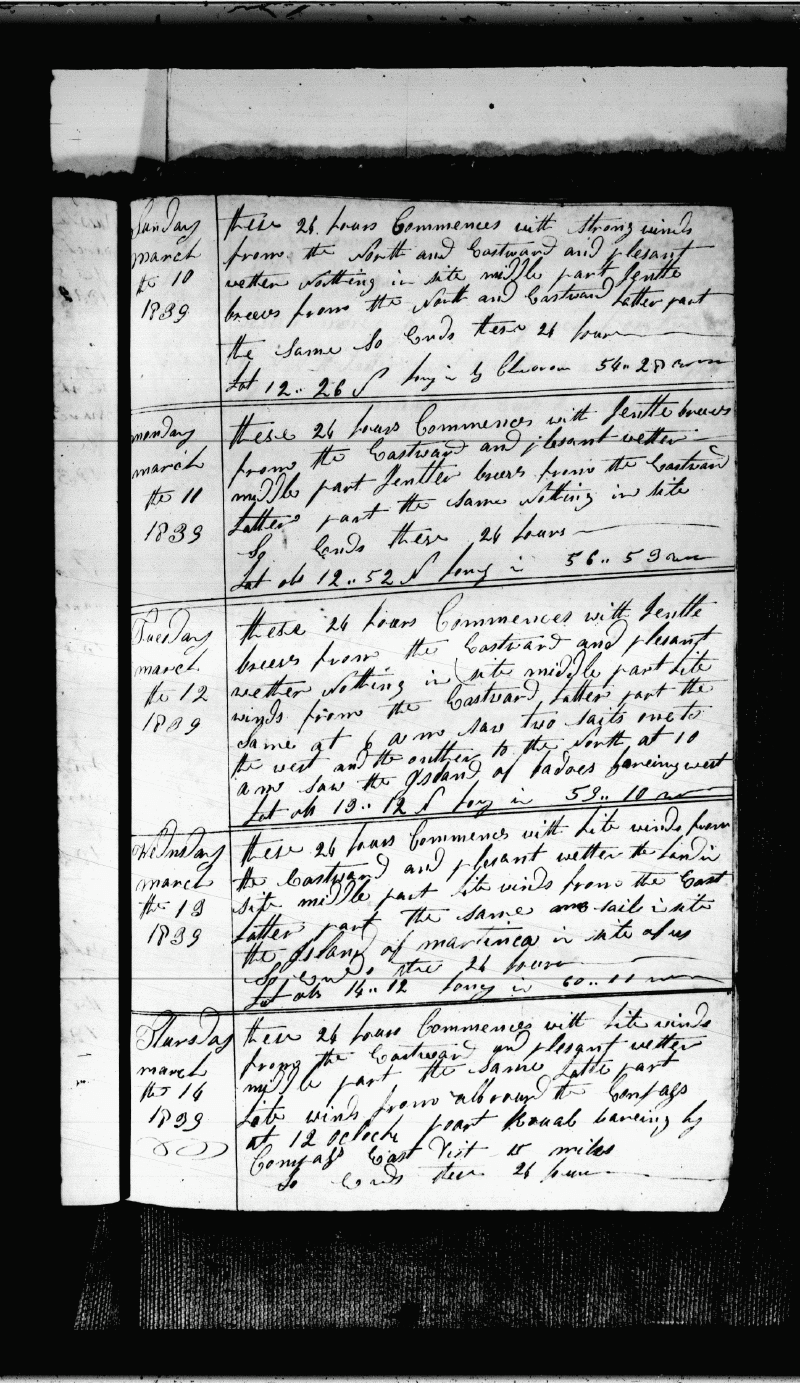 Sunday
march
the 10
1839
these 24 hours Commences with strong winds
from the North and Eastward and plesant
wether Nothing in site middle part Jentle
breses from the North and Eastward Latter part
the same So Ends these 24 hours
Lat 12 .. 26 N Long in by 54 .. 28
monday
march
the 11
1839
these 24 hours Commences with Jentle breses
from the Eastward and plesant wether
middle part Jentler breses from the Eastward
Latter part the same Nothing in site
So Ends these 24 hours
Lat ob 12 .. 52 N Long in 56 .. 59
Tuesday
march
the 12
1839
these 24 hours Commences with Jentle
breses from the Eastward and plesant
wether Nothing in site middle part Lite
winds from the Eastward Latter part the
same at 6 am saw two sails one to
the west and the outher to the North at 10
am saw the Island of badoes bareing west
Lat ob 13 .. 12 N Long in 59 .. 10
Wednsday
march
the 13
1839
these 24 hours Commences with Lite winds from
the Eastward and plesant wether the Land in
site middle part Lite winds from the East
Latter part the same sail in site
the Island of martinca in site of us
So Ends these 24 hours
Lat ob 14 .. 12 Long in 60 .. 11
Thursday
march
the 14
1839
these 24 hours Commences with Lite winds
from the Eastward and plesant wether
middle part the same Latter part
Lite winds from all round the Compass
at 12 oclock poart Roual bareing by
Compass East Dist 15 miles
So Ends these 24 hours